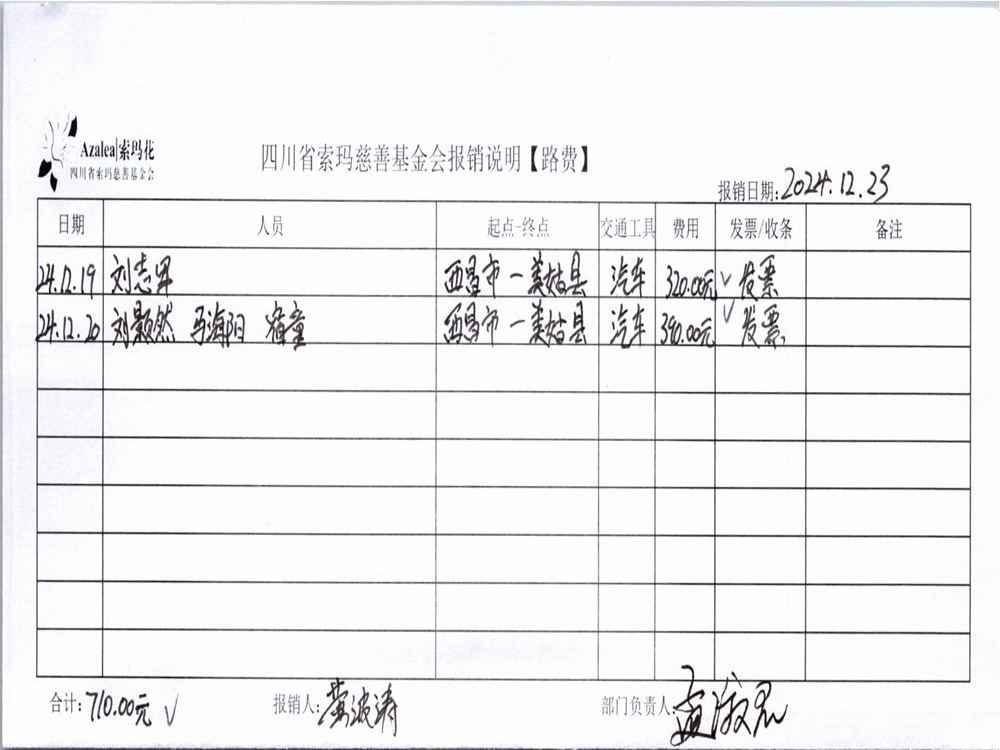 Azalea|索玛花
四川省索玛慈善基金会
四川省索玛慈善基金会报销说明【路费】
报销日期：2024.12.23
日期 人员 起点-终点 交通工具 费用 发票/收条 备注
24.12.19 刘志军 西昌市—美姑县 汽车 320.00元 ✓ 发票
24.12.20 刘颢然 马海阳 西昌市—美姑县 汽车 390.00元 ✓ 发票
合计：710.00元 ✓ 报销人：黄波涛 部门负责人：